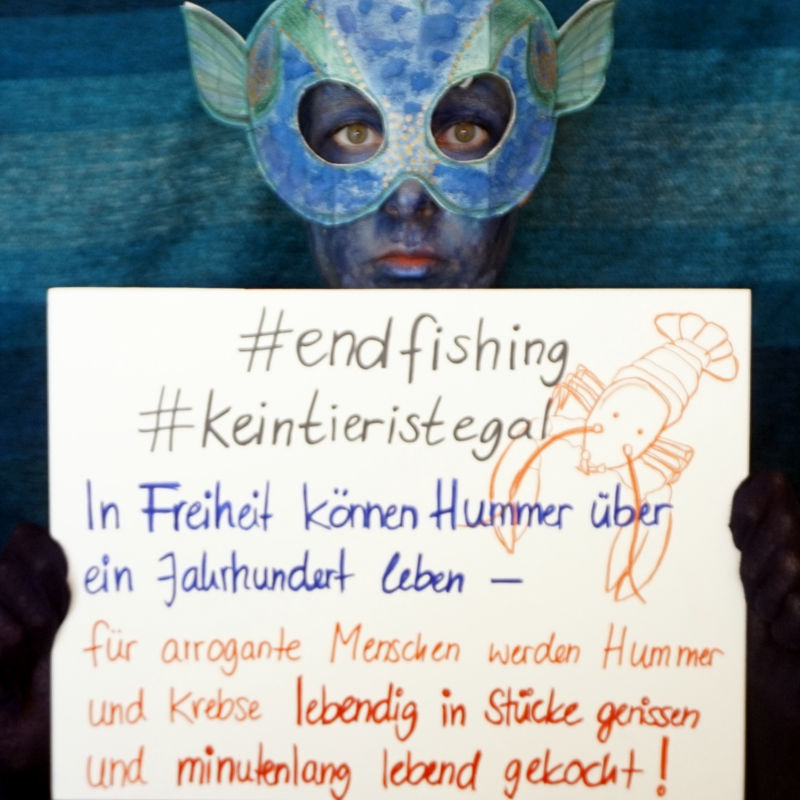 #endfishing
#keintieristegal
In Freiheit können Hummer über
ein Jahrhundert leben –
für arrogante Menschen werden Hummer
und Krebse lebendig in Stücke gerissen
und minutenlang lebend gekocht!